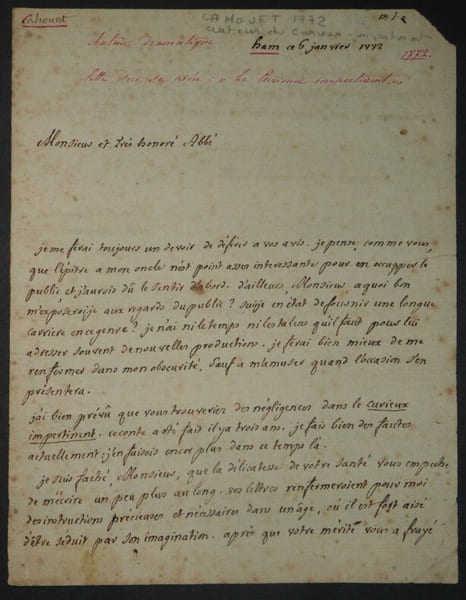 Cahouet
CAHOUET 1772
auteur du Curieux impertinent
m.i.e
Auteur Dramatique
ham ce 6 janvier 1772
1772.
lettre sur sa pièce : « Le Curieux impertinent. »
Monsieur et très honoré Abbé
je me ferai toujours un devoir de déférer a vos avis. je pense, comme vous,
que l'épitre a mon oncle n'ait point assez interessante pour en occupper le
public et j'aurois dû le sentir d'abord. d'ailleurs, Monsieur, a quoi bon
m'exposerois je aux regards du public ? suis je en état de fournir une longue
carriere en ce genre ? je n'ai ni le temps ni les talens qu'il faut pour lui
adresser souvent de nouvelles productions. je ferai bien mieux de me
renfermer dans mon obscurité. Sauf a m'amuser quand l'occasion s'en
présentera.
j'ai bien prévû que vous trouveriez des négligences dans le curieux
impertinent. ce conte a été fait il y a trois ans. je fais bien des fautes
actuellement ; j'en faisois encor plus dans ce temps là.
je suis faché, Monsieur, que la délicatesse de votre santé vous empeche
de m'écrire un peu plus au long. vos lettres renfermeroient pour moi
des instructions précieuses et nécessaires dans un âge, où il est fort aisé
d'être séduit par son imagination. après que votre mérite vous a frayé